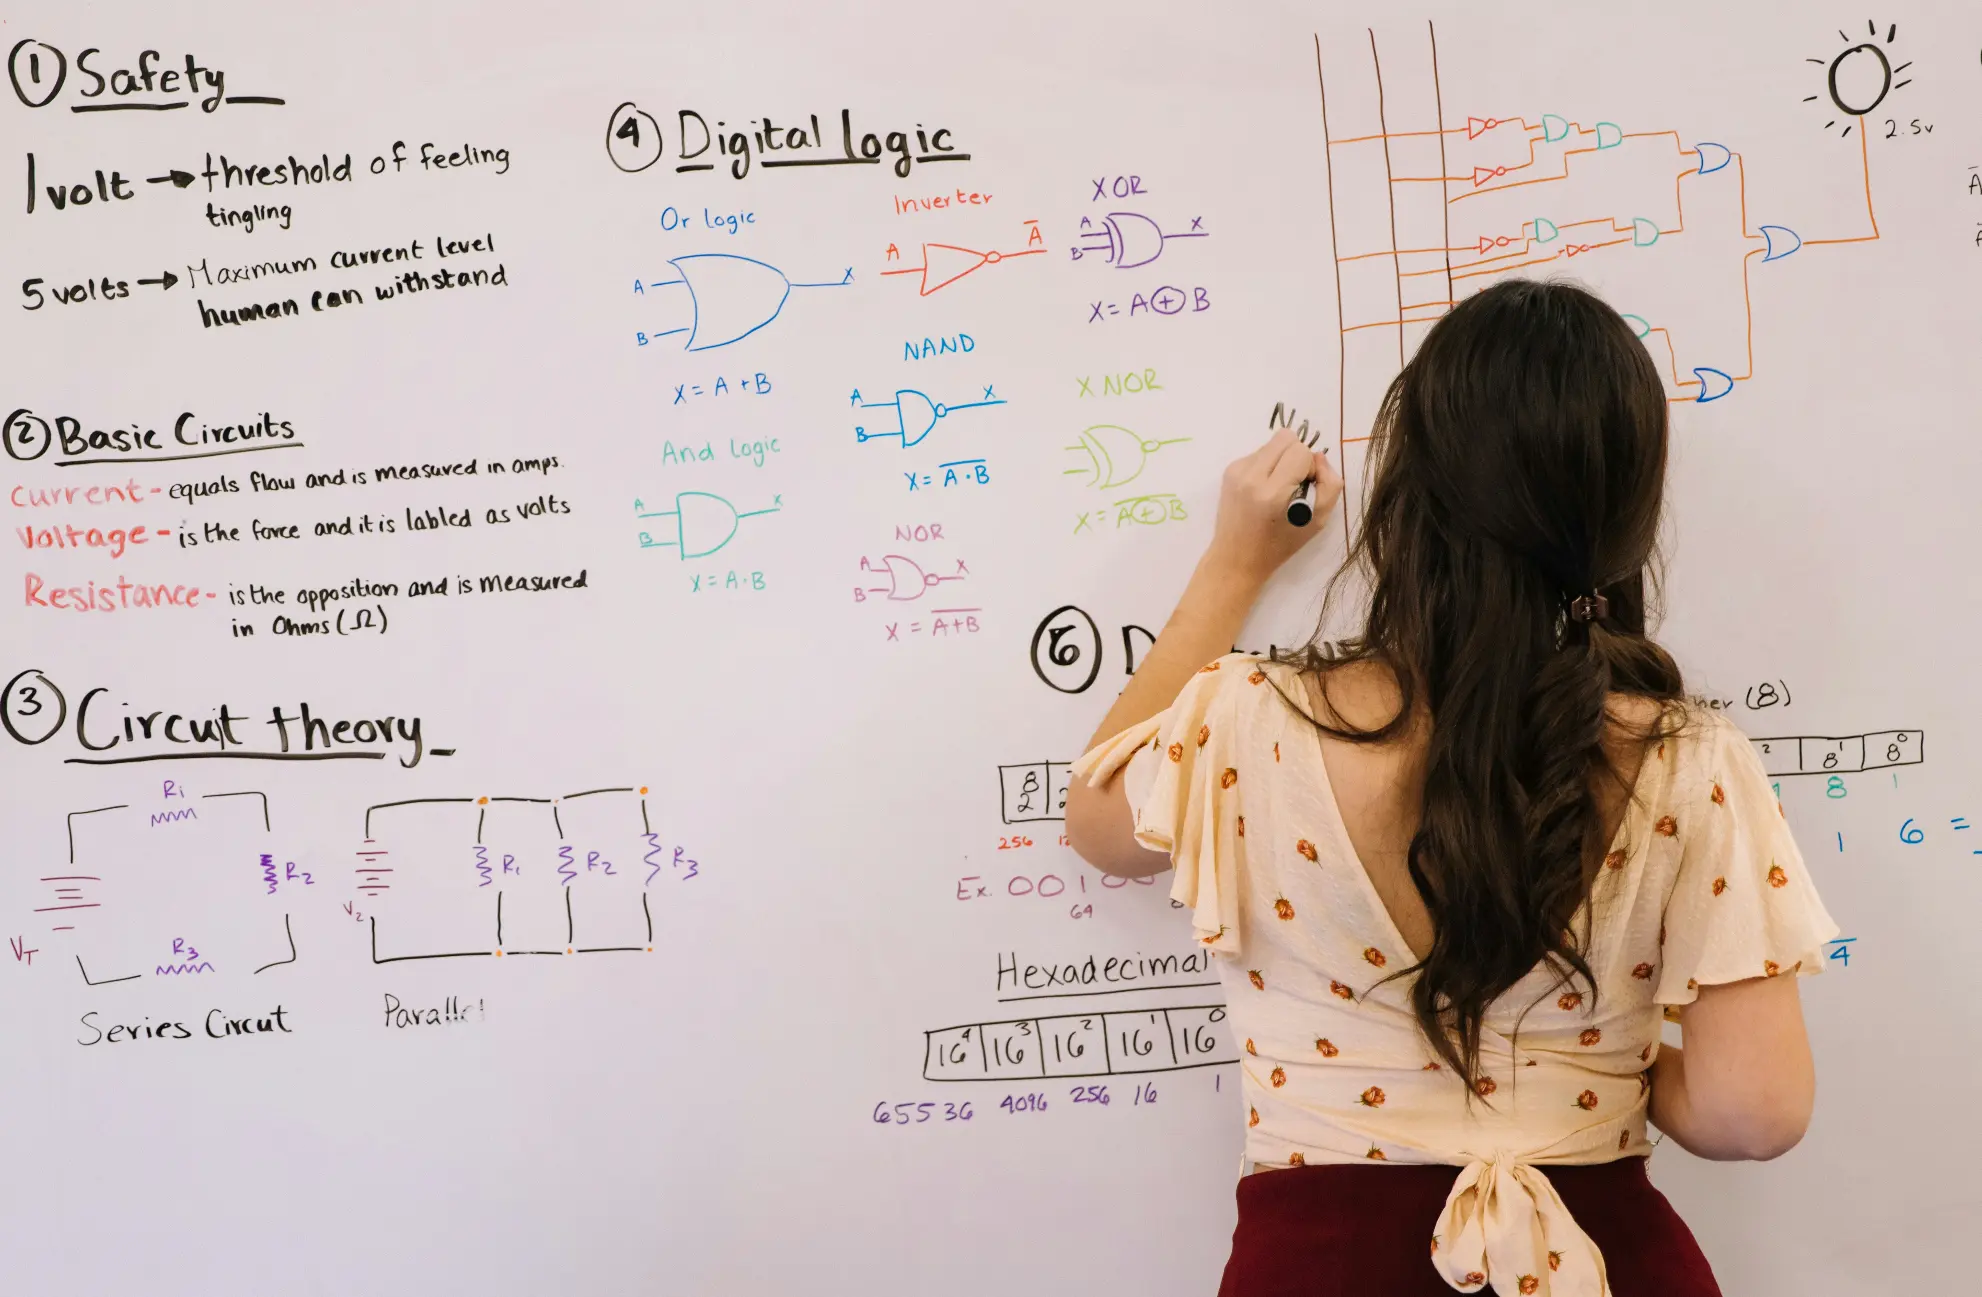 ① Safety_
1 volt → threshold of feeling
tingling
5 volts → Maximum current level
human can withstand
② Basic Circuits
Current - equals flow and is measured in amps.
Voltage - is the force and it is labled as volts
Resistance - is the opposition and is measured
in Ohms (Ω)
③ Circuit theory_
R1
R2
R3
VT
Series Circut
R1
R2
R3
V2
Parallel
④ Digital logic
Or logic
A
B
X
X = A + B
And logic
A
B
X
X = A·B
Inverter
A
A̅
NAND
A
B
X
X = A̅ ̅·̅ ̅B̅
NOR
A
B
X
X = A̅+̅B̅
XOR
A
B
X
X = A⊕B
X NOR
X = A̅⊕̅B̅
2.5v
A̅
⑤ D
8
2
256
Ex. 001
64
(8)
2
8¹
8⁰
8
1
1
6 =
4
Hexadecimal
16⁴ 16³ 16² 16¹ 16⁰
65536 4096 256 16 1